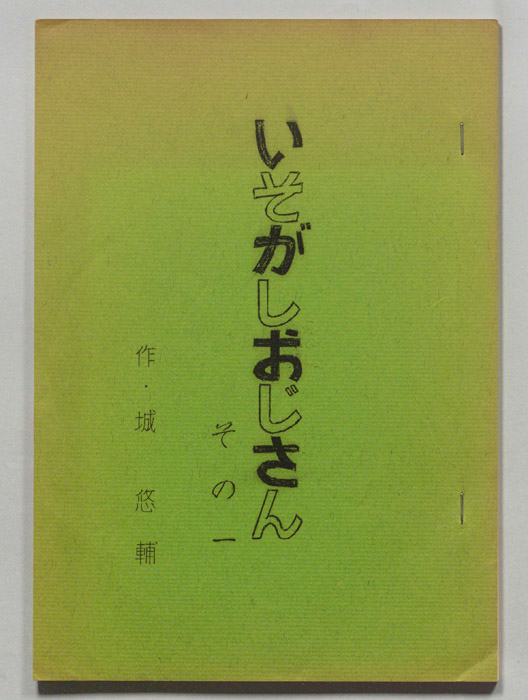 いそがしおじさん
その一
作・城悠輔